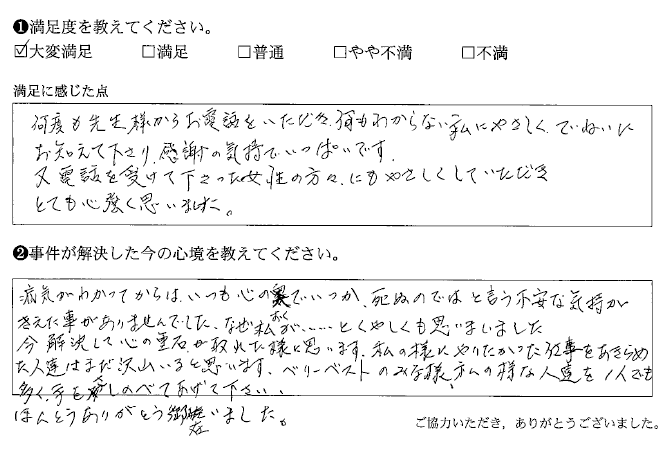 ❶満足度を教えてください。
☑大変満足 □満足 □普通 □やや不満 □不満
満足に感じた点
何度も先生様からお電話をいただき、何もわからない私にやさしく、ていねいに
お知えて下さり、感謝の気持でいっぱいです。
又電話を受けて下さった女性の方々、にもやさしくしていただき
とても心強く思いました。
❷事件が解決した今の心境を教えてください。
病気がわかってからは、いつも心の奥でいつか、死ぬのではと言う不安な気持が
きえた事がありませんでした、なぜ私が、……とくやしくも思いまいました
今解決して心の重石が取れた様に思います、私の様にやりたかった仕事をあきらめ
た人達はまだ沢山いると思います、ベリーベストのみな様、私の様な人達を1人でも
多く、手を差しのべてあげて下さい、
ほんとうありがとう御座いました。
ご協力いただき，ありがとうございました。